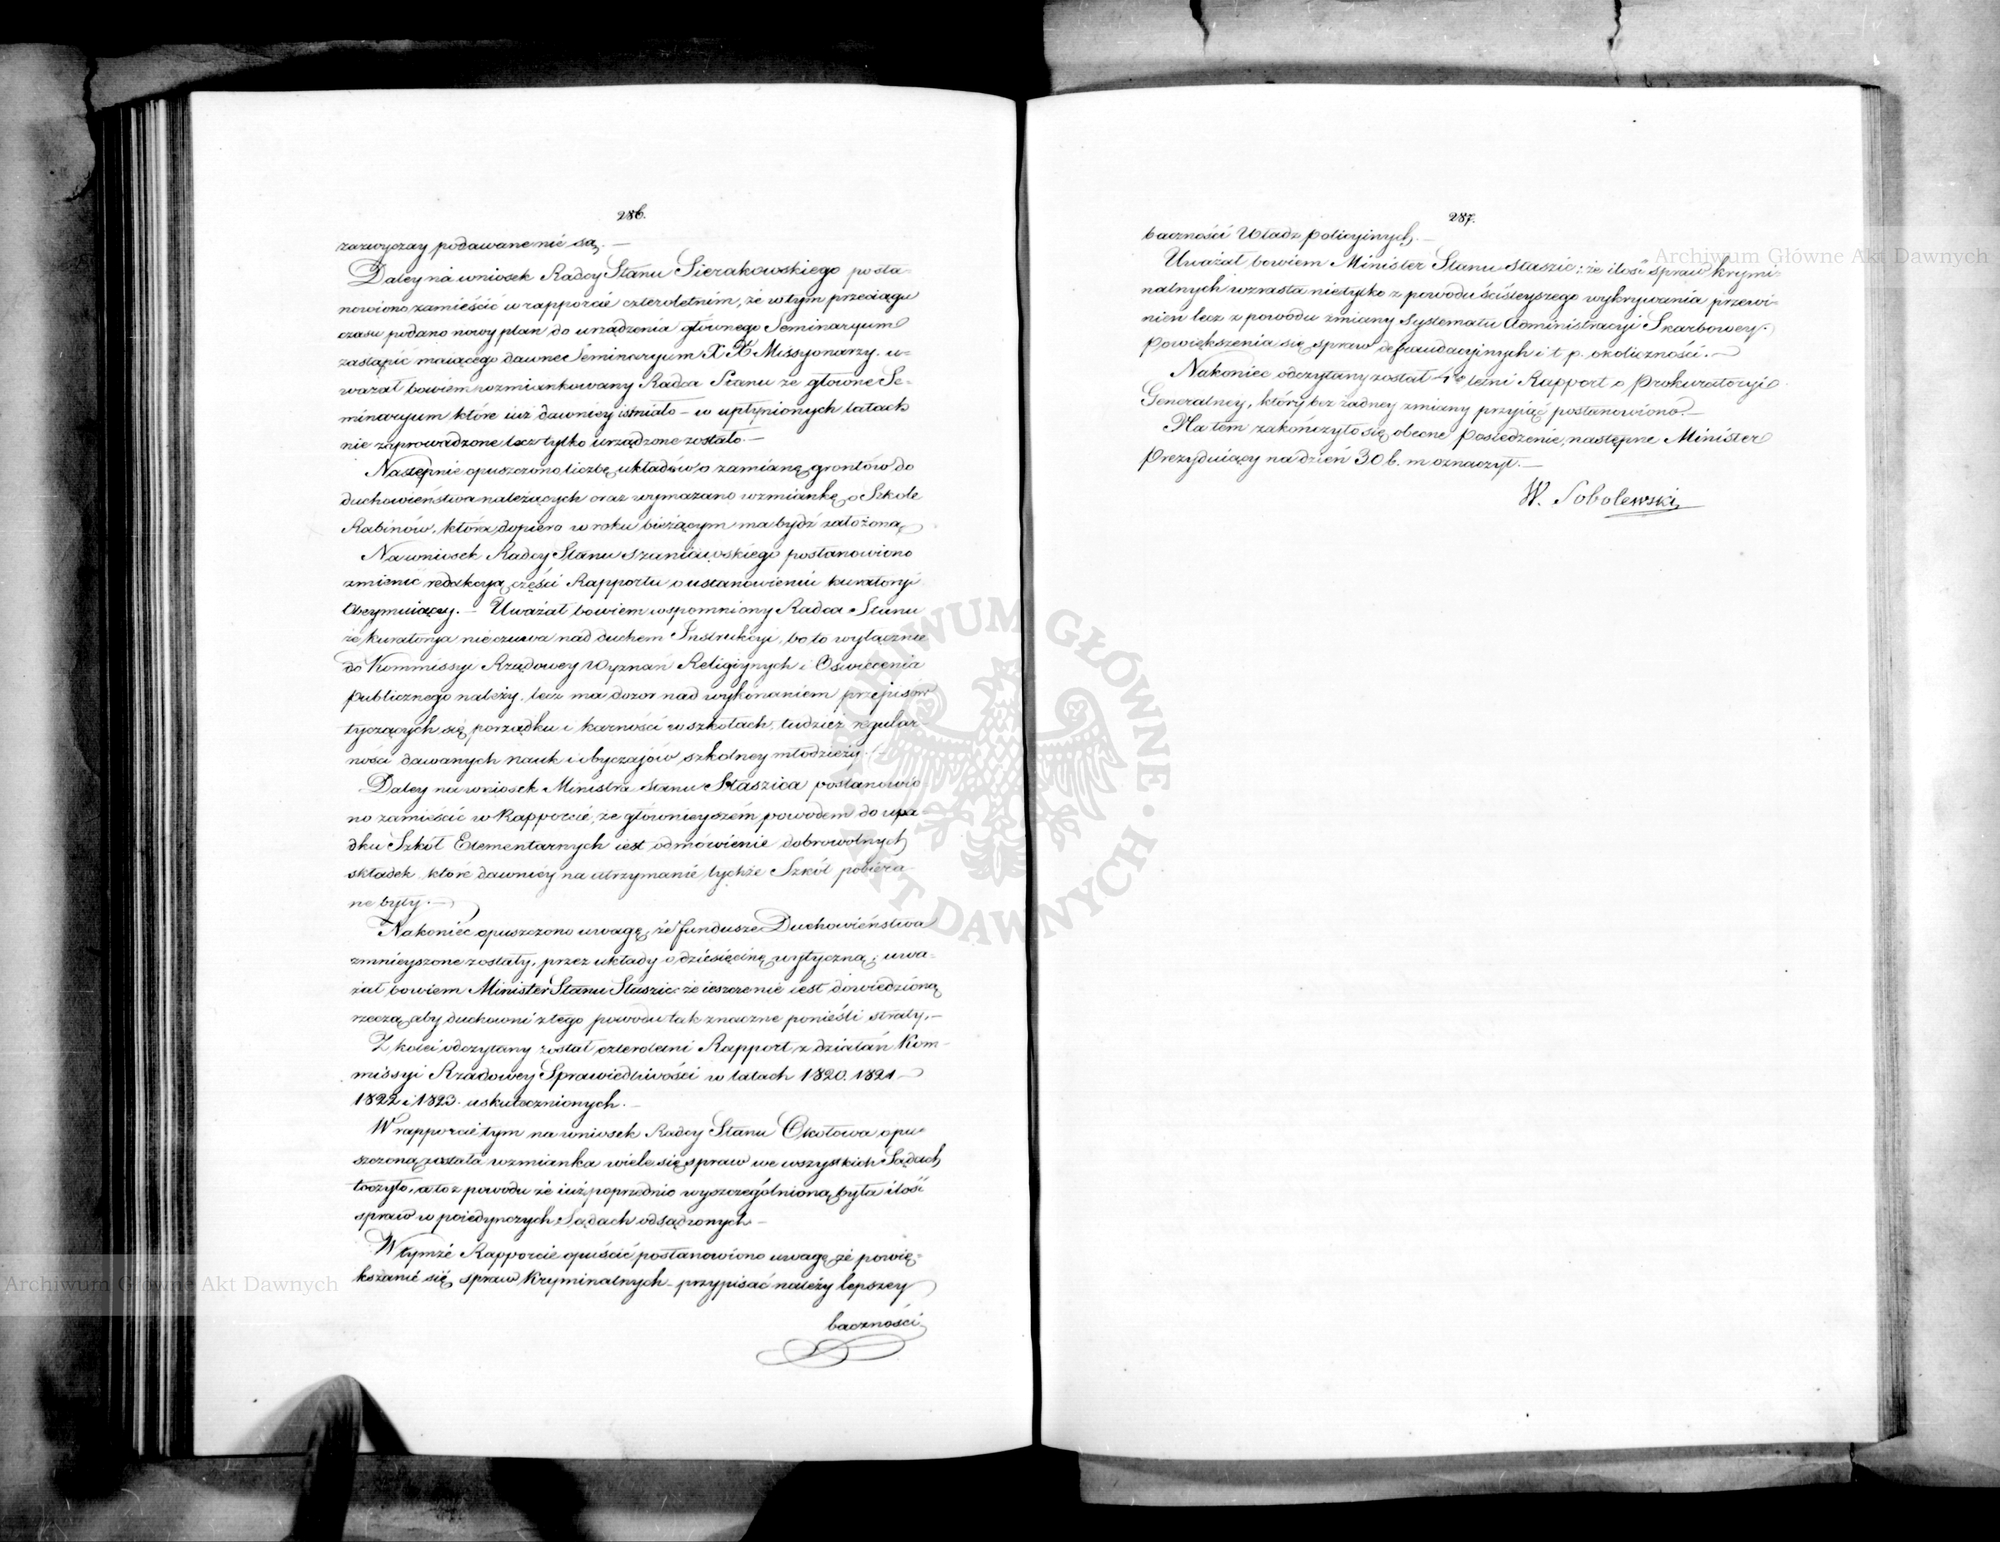 286.
zazwyczay podawane nie są. —
Daley na wniosek Radcy Stanu Sierakowskiego posta-
nowiono zamieścić w rapporcie czteroletnim, że w tym przeciągu
czasu podano nowy plan do urządzenia głównego Seminaryum
zastąpić maiącego dawne Seminaryum X.X. Missyonarzy. u-
ważał bowiem wzmiankowany Radca Stanu że główne Se-
minaryum które iuż dawniey istniało — w upłynionych latach
nie zaprowadzone lecz tylko urządzone zostało. —
Następnie opuszczono liczbę układów o zamianę grontów do
duchowieństwa należących oraz wymazano wzmiankę o Szkole
Rabinów, która dopiero w roku bieżącym ma bydź założoną
Na wniosek Radcy Stanu Szaniawskiego postanowiono
zmienić redakcyą części Rapportu o ustanowieniu kuratoryi
Obeymuiący. — Uważał bowiem wspomniony Radca Stanu
że kuratorya nie czuwa nad duchem Instrukcyi, bo to wyłącznie
do Kommissyi Rządowey Wyznań Religiynych i Oświecenia
publicznego należy, lecz ma dozor nad wykonaniem przepisów
tyczących się porządku i karności w szkołach, tudzież regular-
ności dawanych nauk i obyczajów szkolney młodzieży. —
Daley na wniosek Ministra Stanu Staszica postanowio
no zamieścić w Rapporcie, że głównieyszém powodem do upa-
dku Szkół Elementarnych iest odmówienie dobrowolnych
składek, które dawniéy na utrzymanie tychże Szkół pobiera
ne były. —
Nakoniec opuszczono uwagę, że fundusze Duchowieństwa
zmnieyszone zostały, przez układy o dziesięcinę wytyczną; uwa-
żał bowiem Minister Stanu Staszic: że ieszcze nie iest dowiedzioną
rzeczą aby duchowni z tego powodu tak znaczne ponieśli straty. —
Z kolei odczytany został czteroletni Rapport z działań Kom-
missyi Rządowey Sprawiedliwości w latach 1820. 1821 —
1822 i 1823. uskutecznionych. —
W rapporcie tym na wniosek Radcy Stanu Okołowa opu-
szczoną została wzmianka wiele się spraw we wszystkich Sądach
toczyło, a to z powodu że iuż poprzednio wyszczególnioną była ilość
spraw w poiedynczych Sądach odsądzonych —
W tymże Rapporcie opuścić postanowiono uwagę że powię-
kszanie się spraw kryminalnych — przypisać należy lepszey
baczności
287.
baczności Władz policyinych. —
Uważał bowiem Minister Stanu Staszic: że ilość spraw krymi-
nalnych wzrasta nietylko z powodu ściśleyszego wykrywania przewi-
nień lecz z powodu zmiany systematu Administracyi Skarbowey.
powiększenia się spraw defraudacyinych i t p. okoliczności. —
Nakoniec odczytany został 4o letni Rapport o Prokuratoryi
Generalney, który bez żadney zmiany przyiąć postanowiono. —
Na tém zakończyło się obecne posiedzenie, następne Minister
Prezyduiący na dzień 30 b. m. oznaczył. —
W. Sobolewski
Archiwum Główne Akt Dawnych
Archiwum Główne Akt Dawnych
ARCHIWUM GŁÓWNE
AKT DAWNYCH